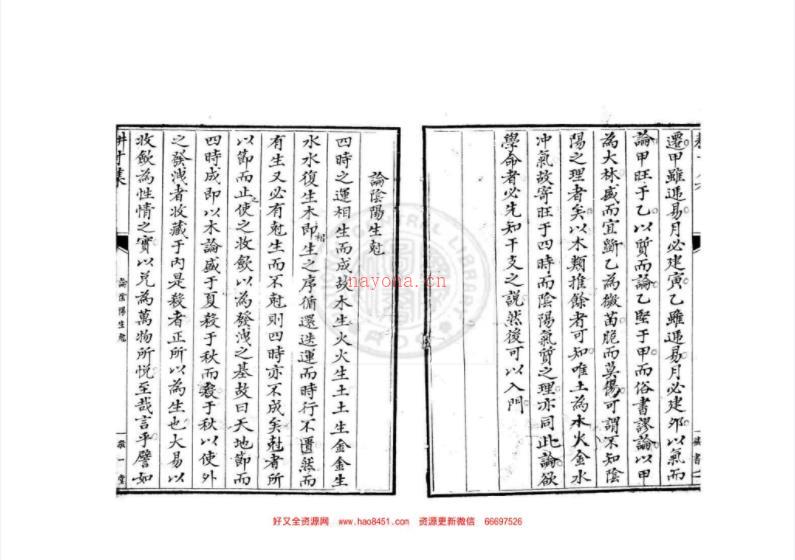 遷甲雖遇易月必建寅乙雖遇易月必建卯以氣而
論甲旺于乙以質而論乙堅于甲而俗書謬論以甲
為大林盛而宜斷乙為微苗脆而莫傷可謂不知陰
陽之理者矣以木類推餘者可知唯土為木火金水
冲氣故寄旺于四時而陰陽氣質之理亦同此論欲
學命者必先知干支之説然後可以入門
論陰陽生尅
四時之運相生而成故木生火火生土土生金金生
水水復生木即相生之序循還迭運而時行不匱然而
有生又必有尅生而不尅則四時亦不成矣尅者所
以節而止之使之收斂以為發洩之基故曰天地節而
四時成即以木論盛于夏殺于秋而殺于秋以使外
之發洩者收藏于内是殺者正所以為生也大易以
收斂為性情之實以兌為萬物所悦至哉言乎譬如
論陰陽生尅
敬一堂
nayona.cn
好又全资源网 www.hao8451.com 资源更新微信 66697526